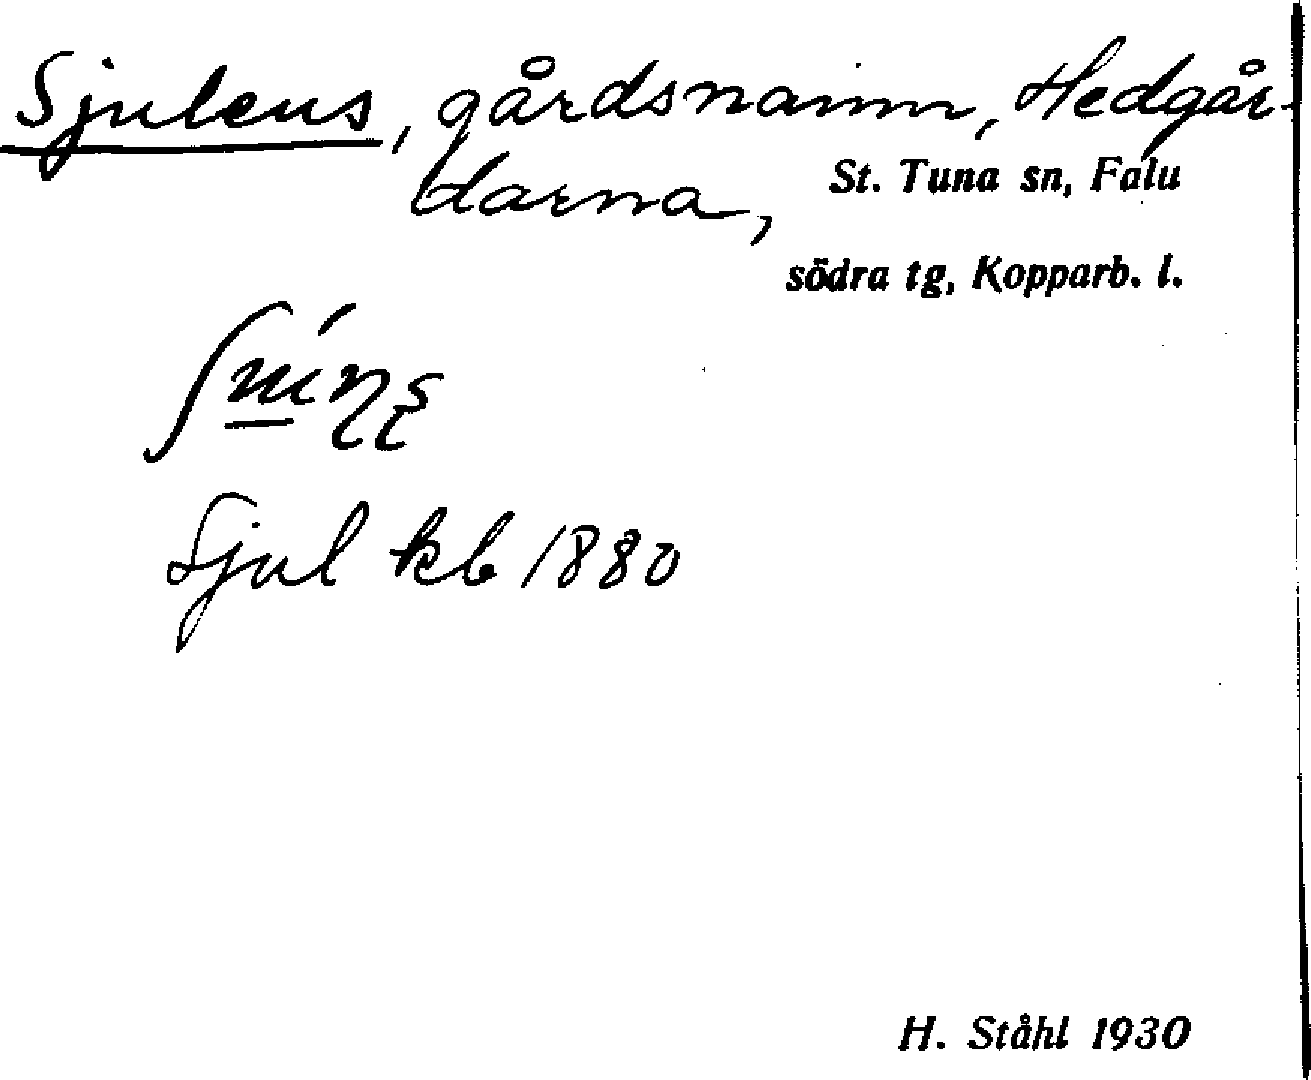 Sjulens, gårdsnamn, Hedgår-
darna,
St. Tuna sn, Falu
södra tg, Kopparb. l.
Sjul kb 1880
H. Ståhl 1930